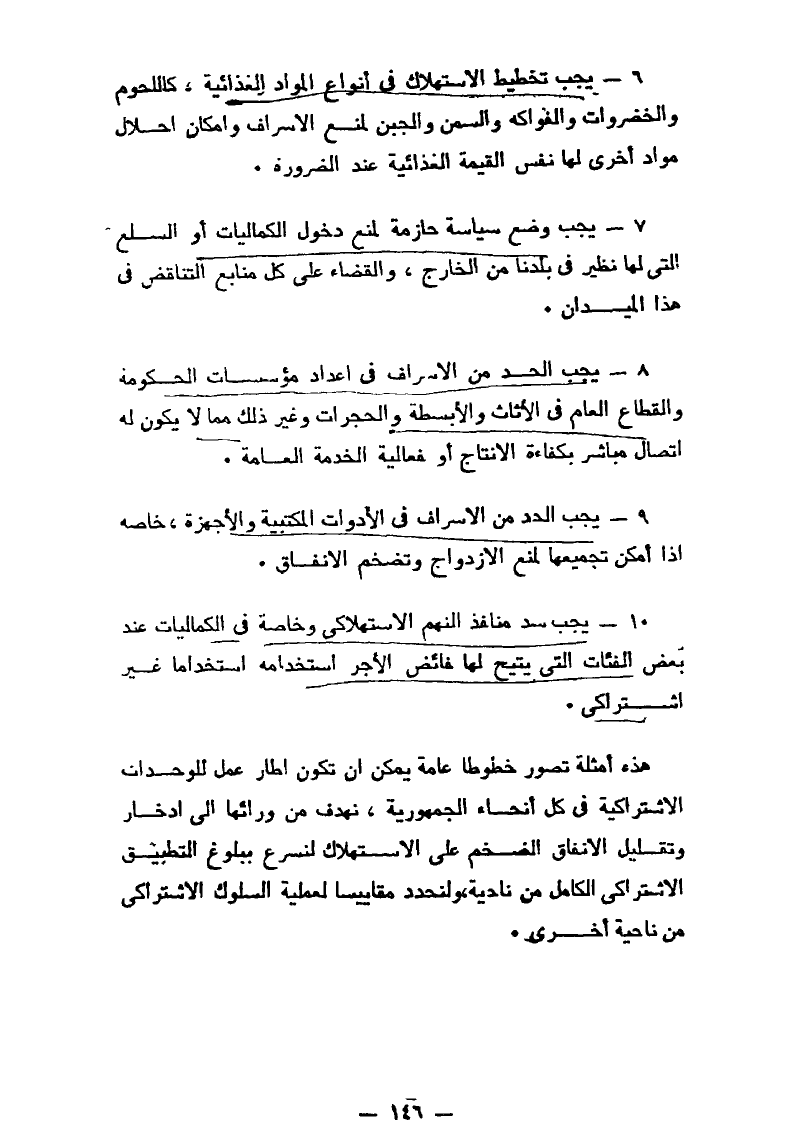 ٦ — يجب تخطيط الاستهلاك فى أنواع المواد الغذائية ، كاللحوم
والخضروات والفواكه والسمن والجبن لمنع الاسراف وامكان احلال
مواد أخرى لها نفس القيمة الغذائية عند الضرورة ٠
٧ — يجب وضع سياسة حازمة لمنع دخول الكماليات أو السلع
التى لها نظير فى بلدنا من الخارج ، والقضاء على كل منابع التناقض فى
هذا الميدان ٠
٨ — يجب الحد من الاسراف فى اعداد مؤسسات الحكومة
والقطاع العام فى الأثاث والأبسطة والحجرات وغير ذلك مما لا يكون له
اتصال مباشر بكفاءة الانتاج أو فعالية الخدمة العامة ٠
٩ — يجب الحد من الاسراف فى الأدوات المكتبية والأجهزة ، خاصه
اذا أمكن تجميعها لمنع الازدواج وتضخم الانفاق ٠
١٠ — يجب سد منافذ النهم الاستهلاكى وخاصة فى الكماليات عند
بعض الفئات التى يتيح لها فائض الأجر استخدامه استخداما غير
اشتراكى ٠
هذه أمثلة تصور خطوطا عامة يمكن ان تكون اطار عمل للوحدات
الاشتراكية فى كل أنحاء الجمهورية ، نهدف من ورائها الى ادخار
وتقليل الانفاق الضخم على الاستهلاك لنسرع ببلوغ التطبيق
الاشتراكى الكامل من ناحية،ولنحدد مقاييسا لعملية السلوك الاشتراكى
من ناحية أخرى ٠
— ١٤٦ —